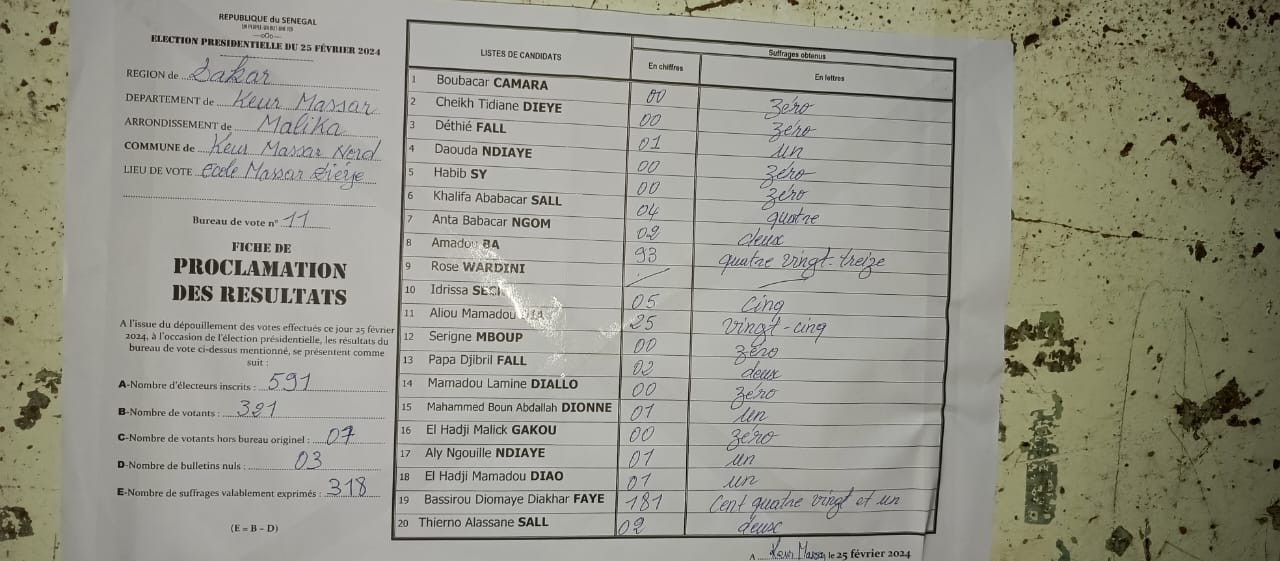 REPUBLIQUE du SENEGAL
—oOo—
ELECTION PRESIDENTIELLE DU 25 FÉVRIER 2024
REGION de Dakar
DEPARTEMENT de Keur Massar
ARRONDISSEMENT de Malika
COMMUNE de Keur Massar Nord
LIEU DE VOTE école Massar Dièye
Bureau de vote n° 11
FICHE DE
PROCLAMATION
DES RESULTATS
A l'issue du dépouillement des votes effectués ce jour 25 février
2024, à l'occasion de l'élection présidentielle, les résultats du
bureau de vote ci-dessus mentionné, se présentent comme
suit :
A-Nombre d'électeurs inscrits : 591
B-Nombre de votants : 321
C-Nombre de votants hors bureau originel : 07
D-Nombre de bulletins nuls : 03
E-Nombre de suffrages valablement exprimés : 318
(E = B – D)
LISTES DE CANDIDATS
Suffrages obtenus
En chiffres En lettres
1 Boubacar CAMARA 00 zéro
2 Cheikh Tidiane DIEYE 00 zéro
3 Déthié FALL 01 un
4 Daouda NDIAYE 00 zéro
5 Habib SY 00 zéro
6 Khalifa Ababacar SALL 04 quatre
7 Anta Babacar NGOM 02 deux
8 Amadou BA 93 quatre vingt-treize
9 Rose WARDINI
10 Idrissa 05 cinq
11 Aliou Mamadou 25 vingt-cinq
12 Serigne MBOUP 00 zéro
13 Papa Djibril FALL 02 deux
14 Mamadou Lamine DIALLO 00 zéro
15 Mahammed Boun Abdallah DIONNE 01 un
16 El Hadji Malick GAKOU 00 zéro
17 Aly Ngouille NDIAYE 01 un
18 El Hadji Mamadou DIAO 01 un
19 Bassirou Diomaye Diakhar FAYE 181 Cent quatre vingt et un
20 Thierno Alassane SALL 02 deux
A Keur Massar, le 25 février 2024